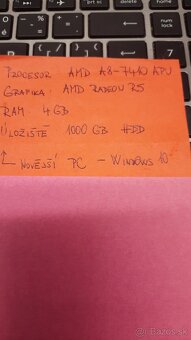 PROCESOR: AMD A8-7410 APU
GRAFIKA: AMD RADEON R5
RAM: 4 GB
ÚLOŽIŠTĚ 1000 GB HDD
↑ NOVĚJŠÍ PC - WINDOWS 10
bazos.sk